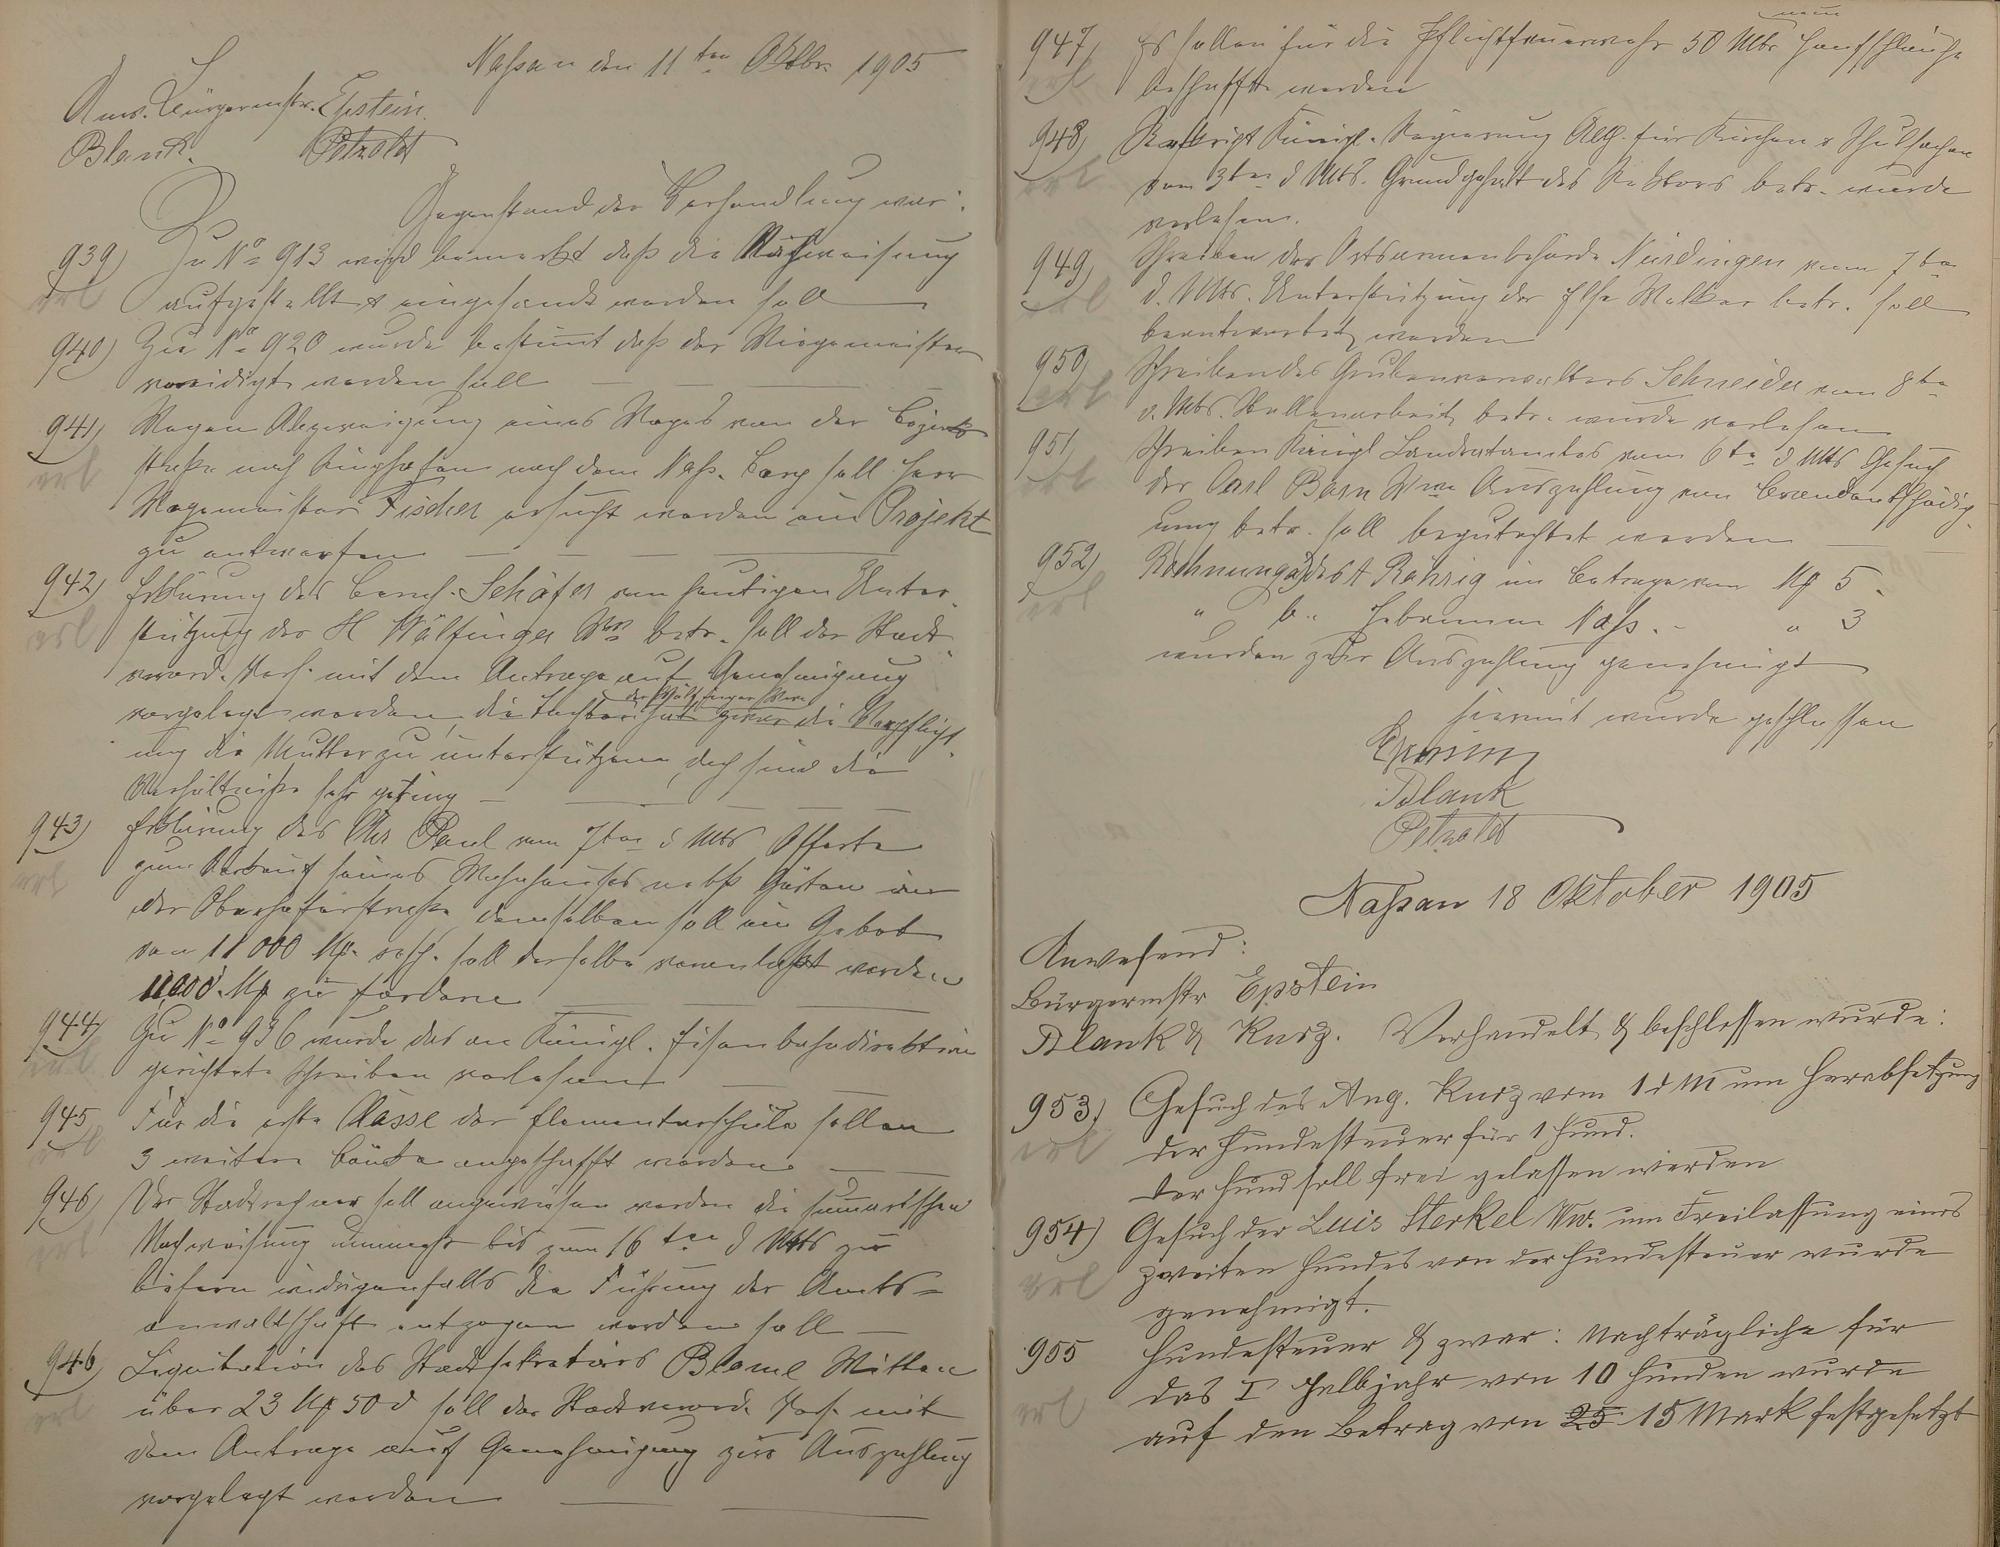 Naßau den 11ten Oktbr. 1905
Anw. Bürgermstr. Epstein.
Blank. Petzoldt
Gegenstand der Verhandlung war:
939) Zu No 913 wird bemerkt daß die Nachweisung
erl
aufgestellt & eingesandt werden soll
940) Zu No 920 wurde bestimt daß der Wiegemeister
vereidigt werden soll
941) Wegen Abzweigung eines Weges von der Bezirks
erl
straße nach nach dem Naß. Berg soll Herr
Wegemeister Fischer ersucht werden ein Projekt
zu entwerfen
942) Erklärung des Schäfer vom heutigen Unter
erl
stützung der H Wülfinger Wwe betr. soll der Stadt
verord. Vers. mit dem Antrage auf Genehmigung
der Wülfinger Wwe
vorgelegt werden, die Tochter hat zwar die Verpflicht
ung die Mutter zu unterstützen, doch sind die
Verhältniße sehr gering
943) Erklärung des Chr Paul vom 7ten d Mts Offerte
erl
zum Verkauf seines Wohnhauses nebst Garten in
der Oberhoferstraße, demselben soll ein Gebot
von 11000 Mk. resp. soll derselbe veranlaßt werden
11000 Mk zu fordern
944) Zu No 936 wurde das an Königl. Eisenbahndirektion
erl
gerichtete Schreiben verlesen
945 Für die erste Klasse der Elementarschule sollen
erl
3 weitere Bänke angeschafft werden
946) Der Stadtrechner soll angewiesen werden die summarischen
erl
Nachweisung nunmehr bis zum 16ten d Mts zu
liefern widrigenfalls die Führung der Amts=
anwaltschaft entzogen werden soll
946) Liquidation des Stadtsekretärs Wittwe
erl
über 23 Mk 50 d soll der Stadtverord. Vers. mit
dem Antrage auf Genehmigung zur Auszahlung
vorgelegt werden
neue
947) Es sollen für die Pflichtfeuerwehr 50 Mtr Hanfschläuche
erl
beschafft werden
948) Königl. Regierung Abth. für Kirchen & Schulsachen
erl
vom 3ten d Mts. Grundgehalt des Rektors betr. wurde
verlesen.
949) Schreiben der Ortsarmenbehörde Neidingen vom 7ten
erl
d. Mts. Unterstützung der Else Walker betr. soll
beantwortet werden
950) Schreiben des Grubenverwalters Schneider vom 8ten
erl
d. Mts. Stollenarbeit betr. wurde verlesen
951) Schreiben Königl Landratamtes vom 6ten d Mts Gesuch
erl
der Carl Born Wwe Auszahlung von Brandentschädig
ung betr. soll begutachtet werden
952) Rechnung a) des A Rohrig im Betrage von Mk 5.
erl
" b. Hebamme Naß. " 3
wurden zur Auszahlung genehmigt
Hiermit wurde geschlossen
Epstein
Blank
Petzoldt
Naßau 18 Oktober 1905
Anwesend:
Bürgermstr Epstein
Blank & Kurz. Verhandelt & beschlossen wurde:
953) Gesuch des Aug. Kurz vom 1 d M um Herabsetzung
erl
der Hundesteuer für 1 Hund.
Der Hund soll frei gelassen werden
954) Gesuch der Luis Sterkel Ww. um Freilassung eines
erl
zweiten Hundes von der Hundesteuer wurde
genehmigt.
955 Hundesteuer & zwar: Nachträgliche für
erl
das I Halbjahr von 10 Hunden wurde
auf den Betrag von 25 15 Mark festgesetzt